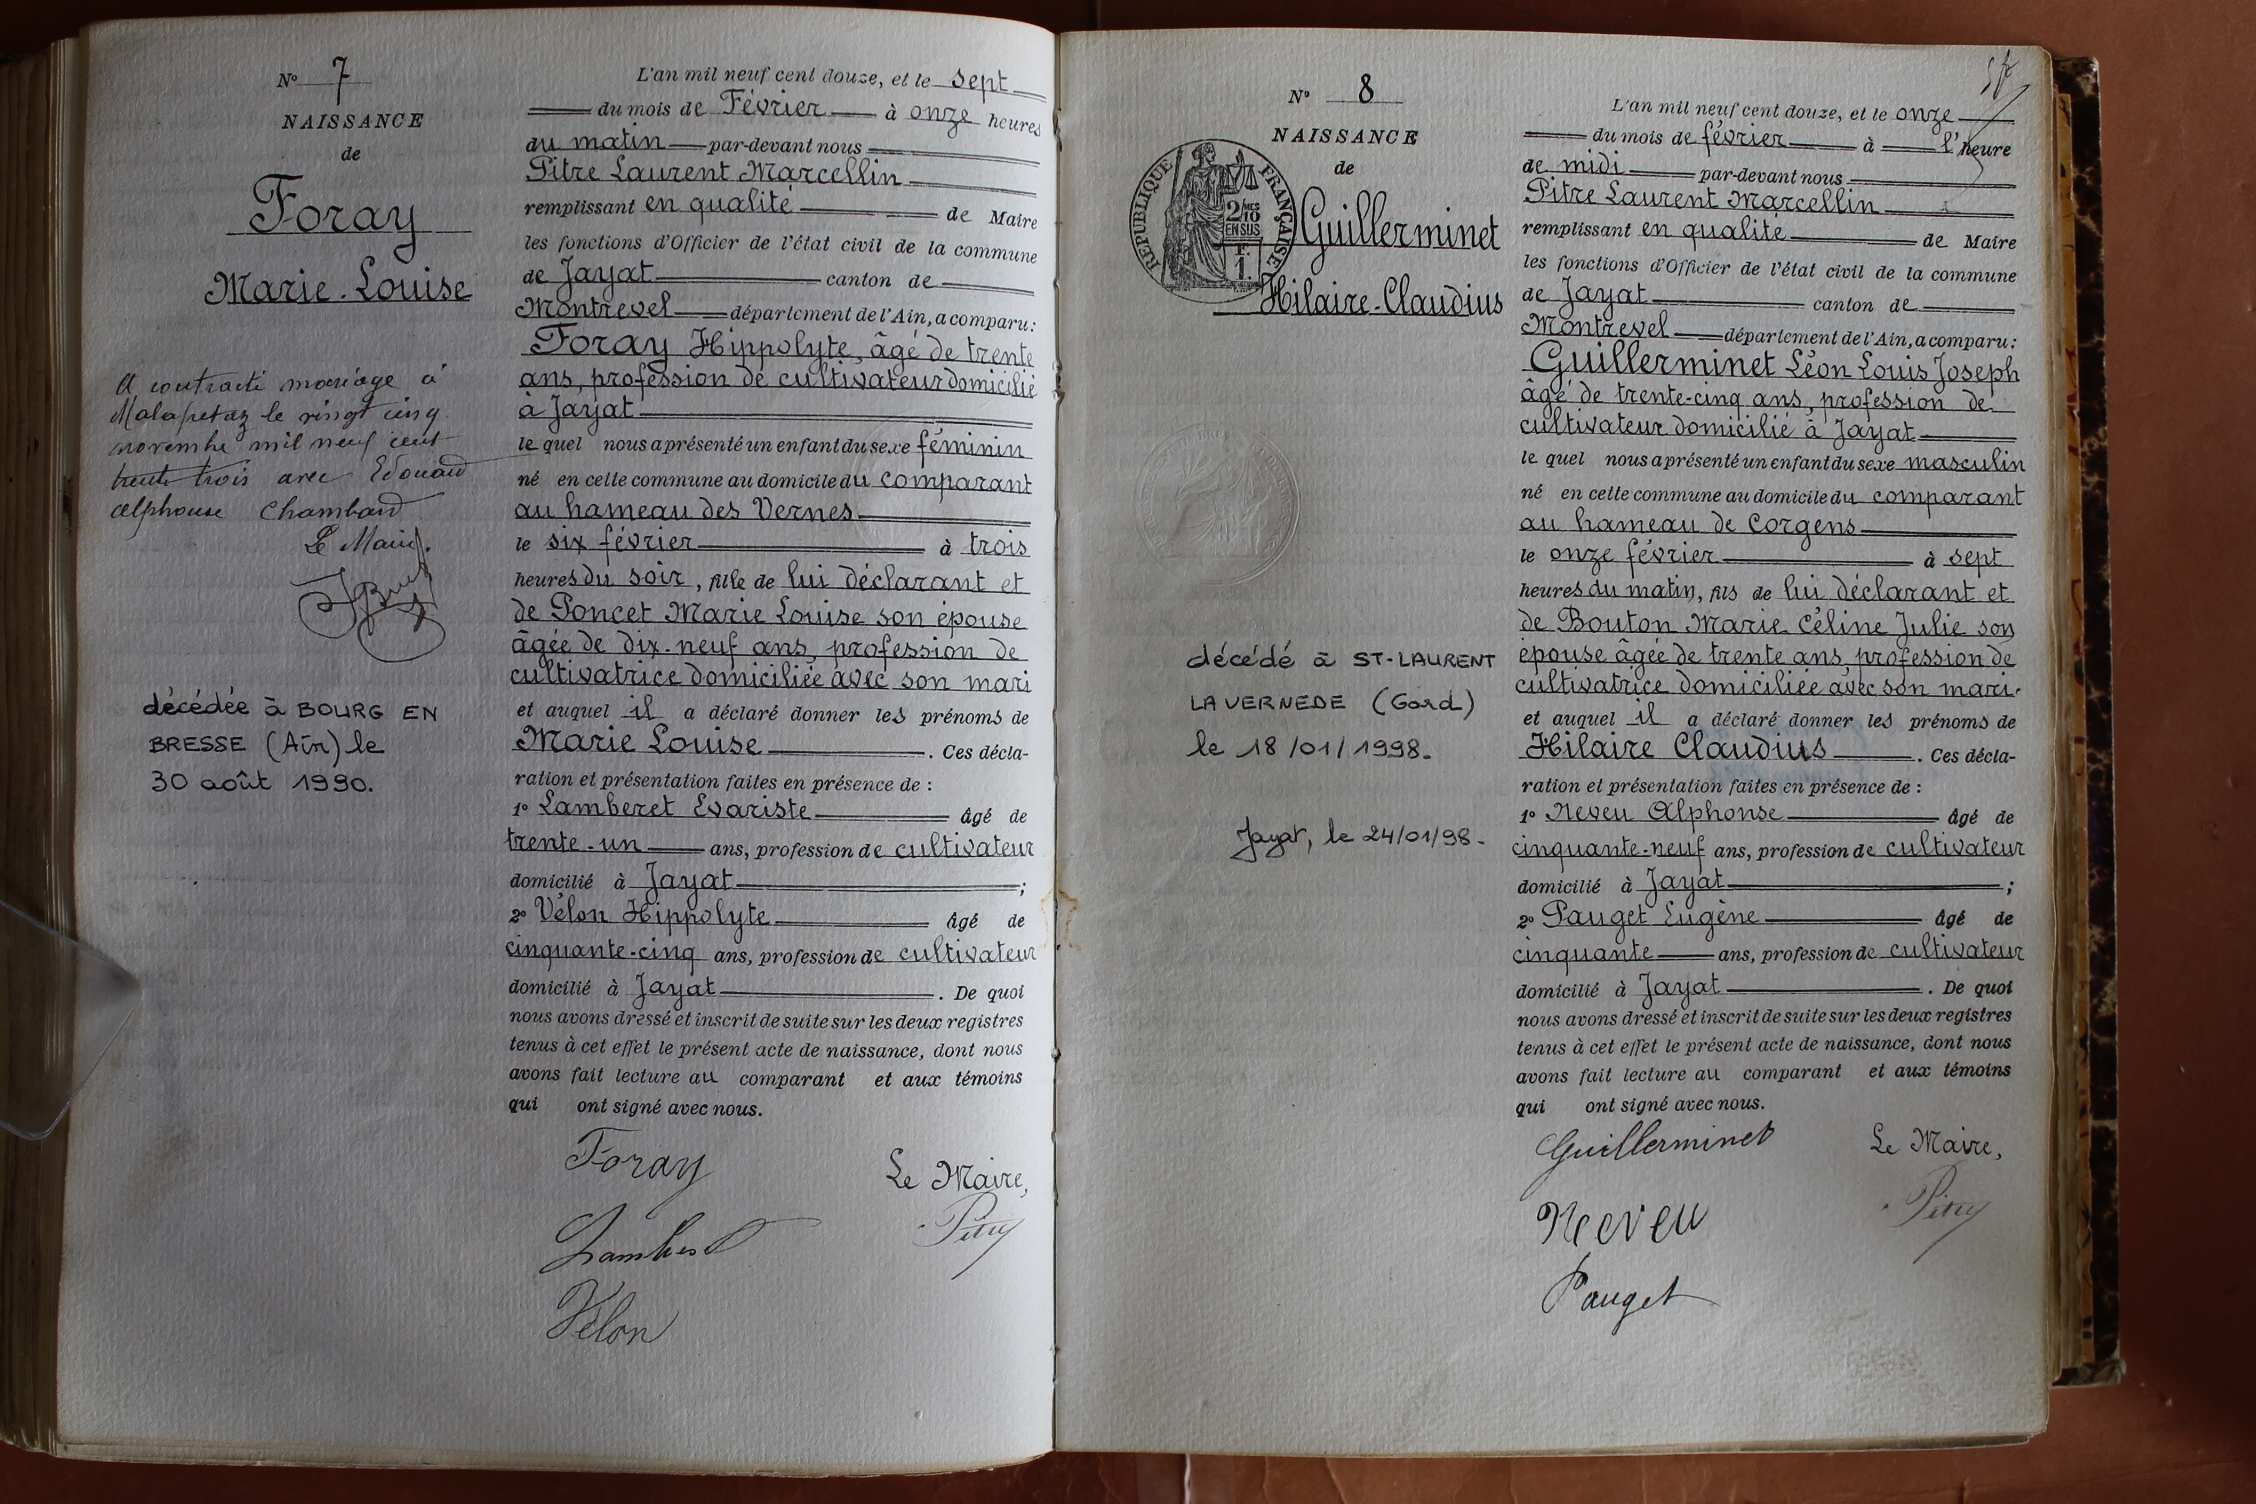 N° 7
NAISSANCE
de
Foray
Marie-Louise
A contracté mariage à
Malapetaz le vingt cinq
novembre mil neuf cent
trente trois avec Edouard
Alphonse Chambard
Le Maire.
décédée à BOURG EN
BRESSE (Ain) le
30 août 1990.
L'an mil neuf cent douze, et le sept
du mois de Février à onze heures
du matin par-devant nous
Pitre Laurent Marcellin
remplissant en qualité de Maire
les fonctions d'Officier de l'état civil de la commune
de Jayat canton de
Montrevel département de l'Ain, a comparu:
Foray Hippolyte, âgé de trente
ans, profession de cultivateur domicilié
à Jayat
le quel nous a présenté un enfant du sexe féminin
né en cette commune au domicile du comparant
au hameau des Vernes
le six février à trois
heures du soir, fille de lui déclarant et
de Poncet Marie Louise son épouse
âgée de dix-neuf ans, profession de
cultivatrice domiciliée avec son mari
et auquel il a déclaré donner les prénoms de
Marie Louise. Ces décla-
ration et présentation faites en présence de :
1° Lamberet Evariste âgé de
trente-un ans, profession de cultivateur
domicilié à Jayat ;
2° Vélon Hippolyte âgé de
cinquante-cinq ans, profession de cultivateur
domicilié à Jayat. De quoi
nous avons dressé et inscrit de suite sur les deux registres
tenus à cet effet le présent acte de naissance, dont nous
avons fait lecture au comparant et aux témoins
qui ont signé avec nous.
Foray
Le Maire,
Pitre
Lamberet
Vélon
N° 8
NAISSANCE
de
RÉPUBLIQUE FRANÇAISE
2/10 MES
EN SUS
F.
1
Guillerminet
Hilaire-Claudius
décédé à ST-LAURENT
LA VERNEDE (Gard)
le 18/01/1998.
Jayat, le 24/01/98.
L'an mil neuf cent douze, et le onze
du mois de février à l'heure
de midi par-devant nous
Pitre Laurent Marcellin
remplissant en qualité de Maire
les fonctions d'Officier de l'état civil de la commune
de Jayat canton de
Montrevel département de l'Ain, a comparu:
Guillerminet Léon Louis Joseph
âgé de trente-cinq ans, profession de
cultivateur domicilié à Jayat
le quel nous a présenté un enfant du sexe masculin
né en cette commune au domicile du comparant
au hameau de Corgens
le onze février à sept
heures du matin, fils de lui déclarant et
de Bouton Marie Céline Julie son
épouse âgée de trente ans, profession de
cultivatrice domiciliée avec son mari.
et auquel il a déclaré donner les prénoms de
Hilaire Claudius. Ces décla-
ration et présentation faites en présence de :
1° Neveu Alphonse âgé de
cinquante-neuf ans, profession de cultivateur
domicilié à Jayat ;
2° Pauget Eugène âgé de
cinquante ans, profession de cultivateur
domicilié à Jayat. De quoi
nous avons dressé et inscrit de suite sur les deux registres
tenus à cet effet le présent acte de naissance, dont nous
avons fait lecture au comparant et aux témoins
qui ont signé avec nous.
Guillerminet
Le Maire,
Pitre
Neveu
Pauget